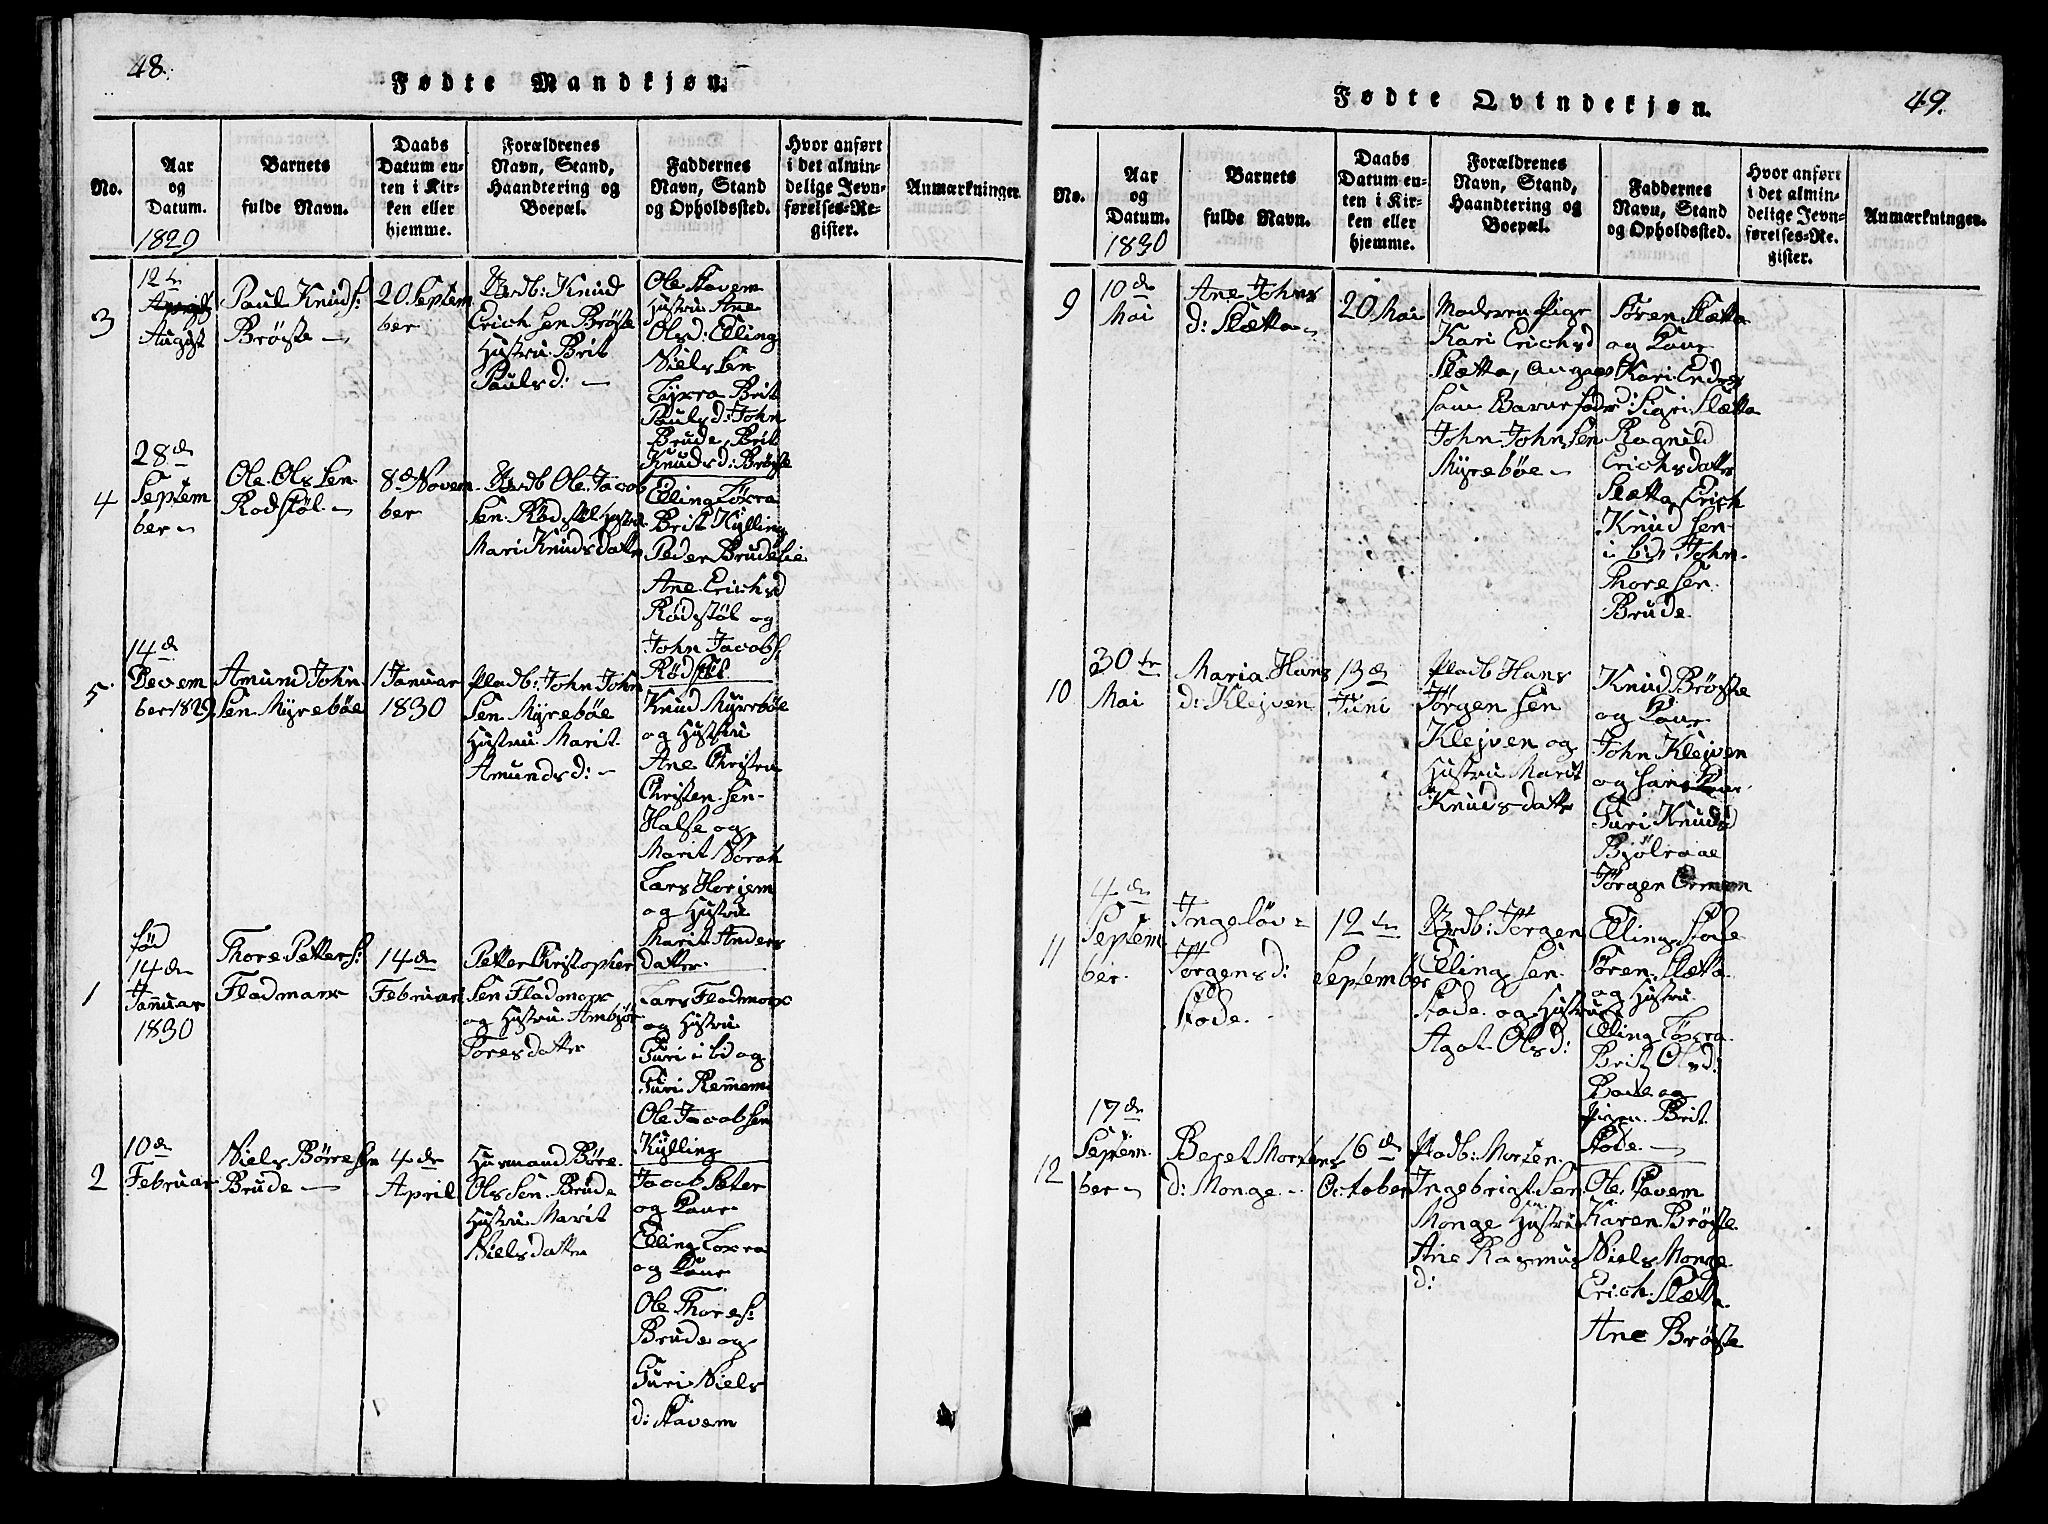 48.
Fødte Mandkjøn.
No.
Aar
og
Datum.
1829
Barnets
fulde Navn.
Daabs
Datum en-
ten i Kir-
ken eller
hjemme.
Forældrenes
Navn, Stand,
Haandtering og
Boepæl.
Faddernes
Navn, Stand
og Opholdssted.
Hvor anført
i det almin-
delige Jevn-
førelses-Re-
gister.
Anmærkninger.
3
12te
August
Paul Knuds:
Brøste
20 Septem
ber
Grdb: Knud
Erich sen Brøste
Hustru Brit
Pauls d:
Ole Stavem
Hustru Ane
Ols d: Elling
Niels sen
Brit
Pauls d: John
Brude, Brit
Knuds d: Brøste
4
28de
Septem
ber
Ole Ols sen
Rødstøl
8de Novem
ber
Grdb Ole Jacob
sen Rødstøl Hustru
Mari Knuds datter
Elling
Brit Kylling
Peder Brudelie
Ane Erichs d
Rødstøl og
John Jacobs
Rødstøl
5
14de
Decem
ber 1829
Amund John
sen Myrebøe
1 Januar
1830
Pladb: John John
sen Myrebøe
Hustru Marit
Amunds d:
Knud Myrebøe
og Hustru
Ane Christen
Christen sen
Halse og
Marit Norah
Lars Horjem
og Hustru
Marit Anders
datter
1
fød
14de
Januar
1830
Thore Petters:
Fladmark
14de
Februari
Petter Christopher
sen Fladmark
og Hustru Ambjør
Tores datter
Lars Fladmark
og Hustru
Guri i Lid og
Guri Remmem
Ole Jacob sen
Kylling
2
10de
Februar
Niels Børre sen
Brude
4de
April
Husmand Børe
Ols sen Brude
Hustru Marit
Niels datter
Jacob Sæter
og Kone
Elling
og Kone
Ole Thores:
Brude og
Guri Niels
d: Stavem
49.
Fødte Qvindekjøn.
No.
Aar
og
Datum.
1830
Barnets
fulde Navn.
Daabs
Datum en-
ten i Kir-
ken eller
hjemme.
Forældrenes
Navn, Stand,
Haandtering og
Boepæl.
Faddernes
Navn, Stand
og Opholdssted.
Hvor anført
i det almin-
delige Jevn-
førelses-Re-
gister.
Anmærkninger.
9
10de
Mai
Ane Johns
d: Slætta
20 Mai
Moderen Pige
Kari Erichs d
Slætta, angaves
som Barnefader
John John sen
Myrebøe
Søren Slætta
og Kone
Kari Endres
d: Sigri Slætta
Ragnild
Erichs datter
Slætta, Erich
Knud sen
i Lid, John
Thore sen
Brude
10
30te
Mai
Maria Hans
d: Klejven
13de
Juni
Pladb Hans
Jørgen sen
Klejven og
Hustru Marit
Knuds datter
Knud Brøste
og Kone
John Klejven
og hans
Guri Knuds d
Bjølraae
Jørgen Ormem
11
4de
Septem
ber
Ingeløv
Jørgens d:
Stode
12te
September
Grdb: Jørgen
Elling sen
Stode og Hustru
Agat Ols d:
Elling Stode
Søren Slætta
og Hustru
Elling
Brit Ols d:
og
Pigen Brit
Stode
12
17de
Septem
ber
Beret Mortens
d: Monge
16de
October
Pladb: Morten
Ingebrigt sen
Monge Hustru
Ane Rasmus
d:
Ole Stavem
Karen Brøste
Niels Monge
Erich Slætta
Ane Brøste